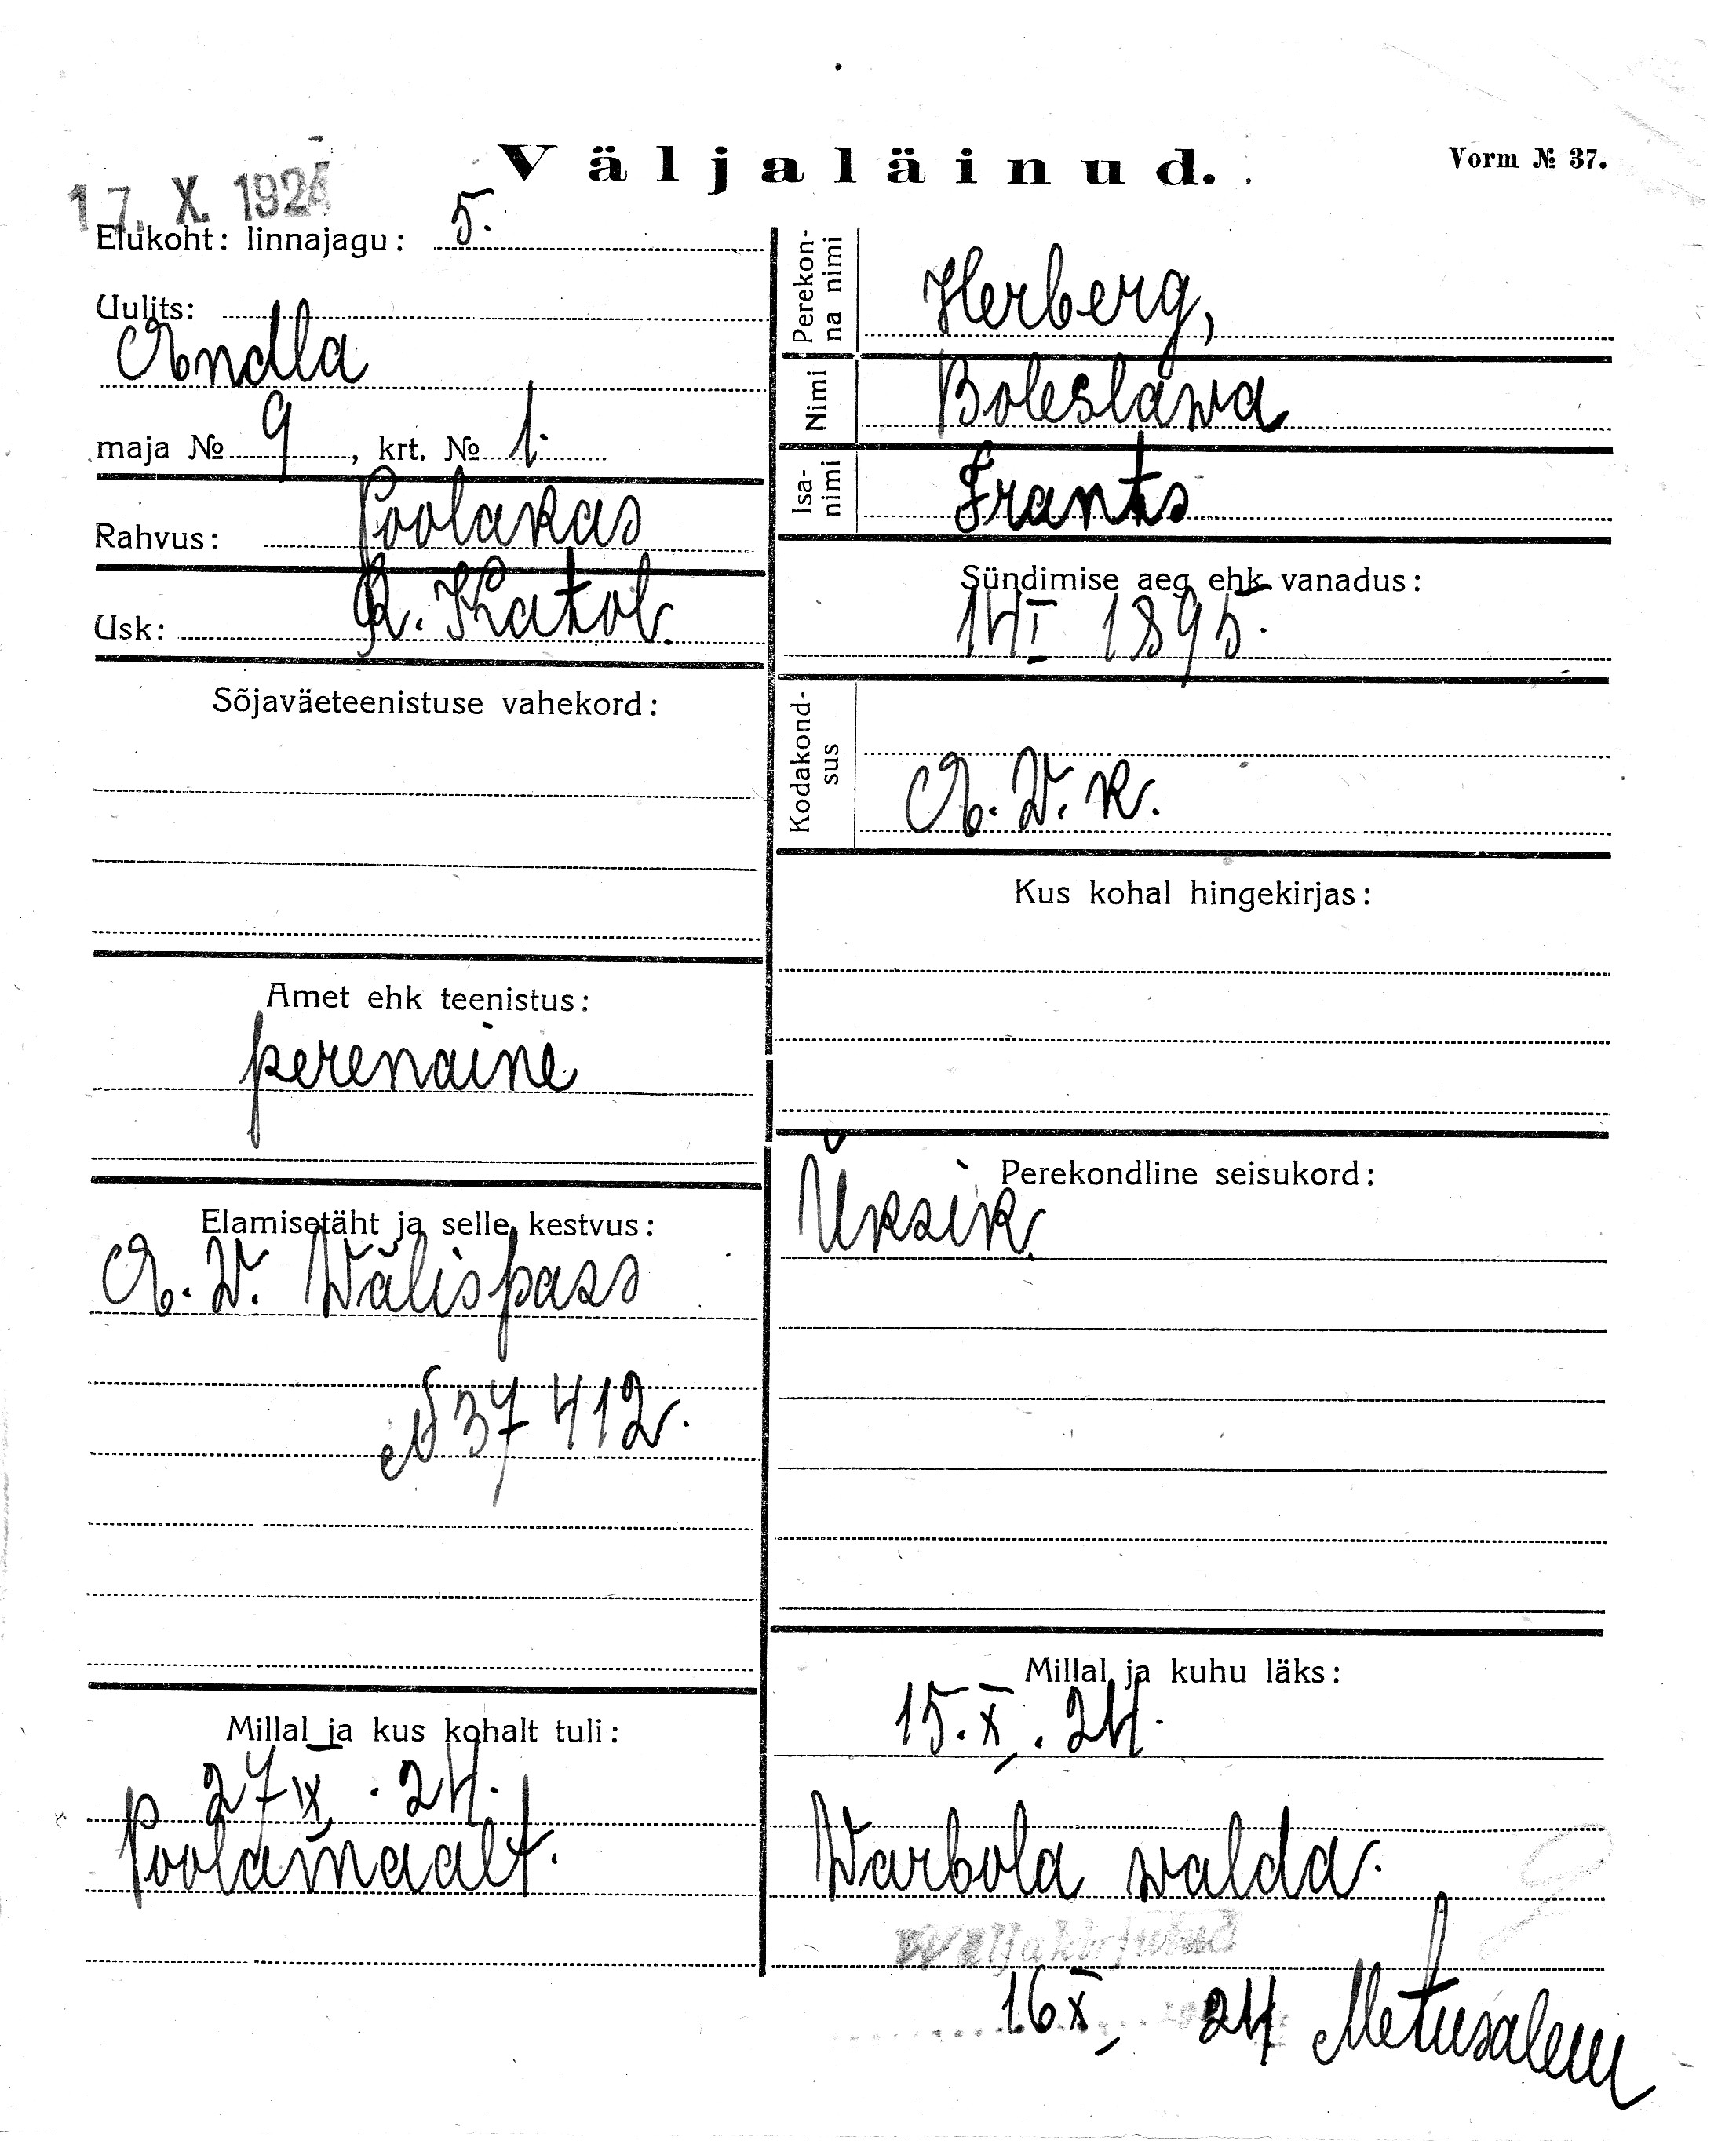 Väljaläinud.
Vorm № 37.
17. X. 1924
Elukoht: linnajagu: 5.
Uulits:
Endla
maja № 9, krt. № 1.
Rahvus: Poolakas
Usk: R. Katol.
Sõjaväeteenistuse vahekord:
Amet ehk teenistus:
perenaine
Elamisetäht ja selle kestvus:
E. W. Wälispass
№ 37412.
Millal ja kus kohalt tuli:
27 IX. 24.
Poolamaalt.
Perekonna nimi
Herberg,
Nimi
Boleslawa
Isanimi
Frants
Sündimise aeg ehk vanadus:
14 I 1895.
Kodakondsus
E. W. k.
Kus kohal hingekirjas:
Perekondline seisukord:
Üksik.
Millal ja kuhu läks:
15. X. 24.
Warbola walda.
Wäljakirjutatud
16 X 24 Metusalem